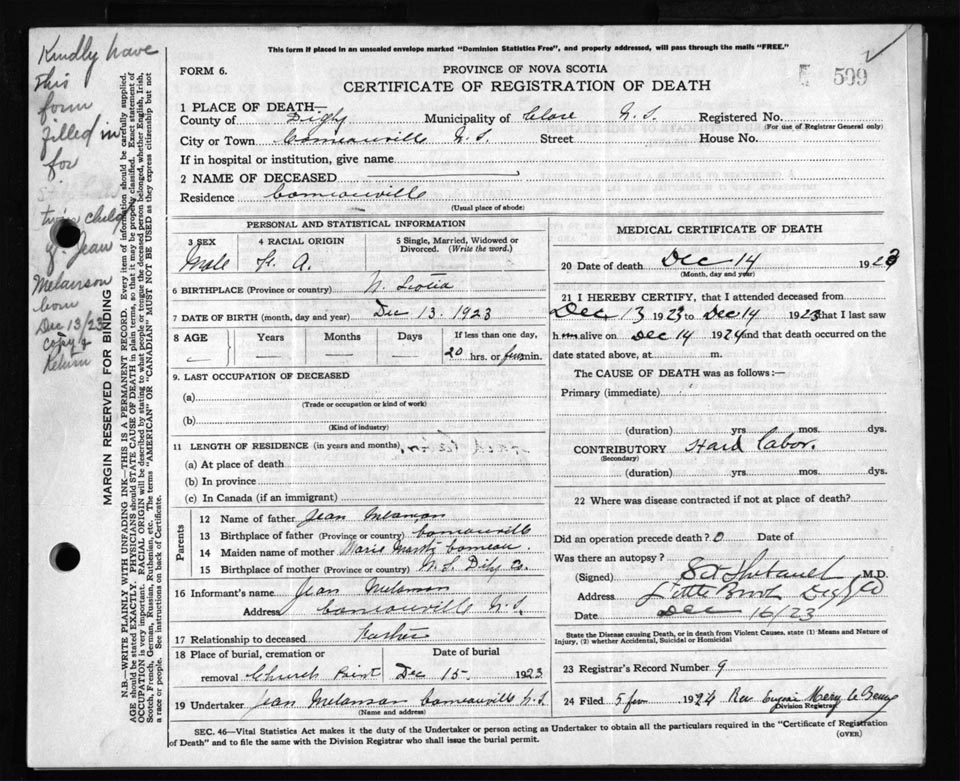 This form if placed in an unsealed envelope marked "Dominion Statistics Free", and properly addressed, will pass through the mails "FREE."
FORM 6.
PROVINCE OF NOVA SCOTIA
599
CERTIFICATE OF REGISTRATION OF DEATH
1 PLACE OF DEATH—
County of Digby Municipality of Clare N. S. Registered No.
(For use of Registrar General only)
City or Town Comeauville N. S. Street House No.
If in hospital or institution, give name
2 NAME OF DECEASED
Residence Comeauville
(Usual place of abode)
PERSONAL AND STATISTICAL INFORMATION
3 SEX 4 RACIAL ORIGIN 5 Single, Married, Widowed or Divorced. (Write the word.)
Male Fr. A.
6 BIRTHPLACE (Province or country) N. Scotia
7 DATE OF BIRTH (month, day and year) Dec 13. 1923
8 AGE Years Months Days If less than one day,
20 hrs. or few min.
9. LAST OCCUPATION OF DECEASED
(a)
(Trade or occupation or kind of work)
(b)
(Kind of industry)
11 LENGTH OF RESIDENCE (in years and months)
(a) At place of death
(b) In province
(c) In Canada (if an immigrant)
Parents
12 Name of father Jean Melanson
13 Birthplace of father (Province or country) Comeauville
14 Maiden name of mother Marie Comeau
15 Birthplace of mother (Province or country) N. S.
16 Informant's name Jean Melanson
Address Comeauville N. S.
17 Relationship to deceased Father
18 Place of burial, cremation or removal Date of burial
Church Point Dec 15 1923
19 Undertaker Jean Melanson Comeauville N. S.
(Name and address)
MEDICAL CERTIFICATE OF DEATH
20 Date of death Dec 14 1923
(Month, day and year)
21 I HEREBY CERTIFY, that I attended deceased from
Dec 13 1923 to Dec 14 1923 that I last saw
him alive on Dec 14 1924 and that death occurred on
date stated above, at m.
The CAUSE OF DEATH was as follows:—
Primary (immediate)
(duration) yrs mos. dys.
CONTRIBUTORY Hard labor.
(Secondary)
(duration) yrs mos. dys.
22 Where was disease contracted if not at place of death?
Did an operation precede death? 0 Date of
Was there an autopsy?
(Signed) M.D.
Address Little Brook Digby Co
Date Dec 16/23
State the Disease causing Death, or in death from Violent Causes, state (1) Means and Nature of Injury, (2) whether Accidental, Suicidal or Homicidal
23 Registrar's Record Number 9
24 Filed 5 1924 Rev
Division Registrar
SEC. 46—Vital Statistics Act makes it the duty of the Undertaker or person acting as Undertaker to obtain all the particulars required in the "Certificate of Registration of Death" and to file the same with the Division Registrar who shall issue the burial permit.
(OVER)
MARGIN RESERVED FOR BINDING
N.B.—WRITE PLAINLY WITH UNFADING INK—THIS IS A PERMANENT RECORD. Every item of information should be carefully supplied.
AGE should be stated EXACTLY. PHYSICIANS should STATE CAUSE OF DEATH in plain terms, so that it may be properly classified. Exact statement of
OCCUPATION is very important. RACIAL ORIGIN will be described by stating to what people or tongue the deceased person belonged, whether English, Irish,
Scotch, French, German, Russian, Ruthenian, etc. The terms "AMERICAN" OR "CANADIAN" MUST NOT BE USED as they express citizenship but not
a race or people. See instructions on back of Certificate.
Kindly have
this
form
filled in
for
twin child
of Jean
Melanson
born
Dec 13/23
copy &
Return